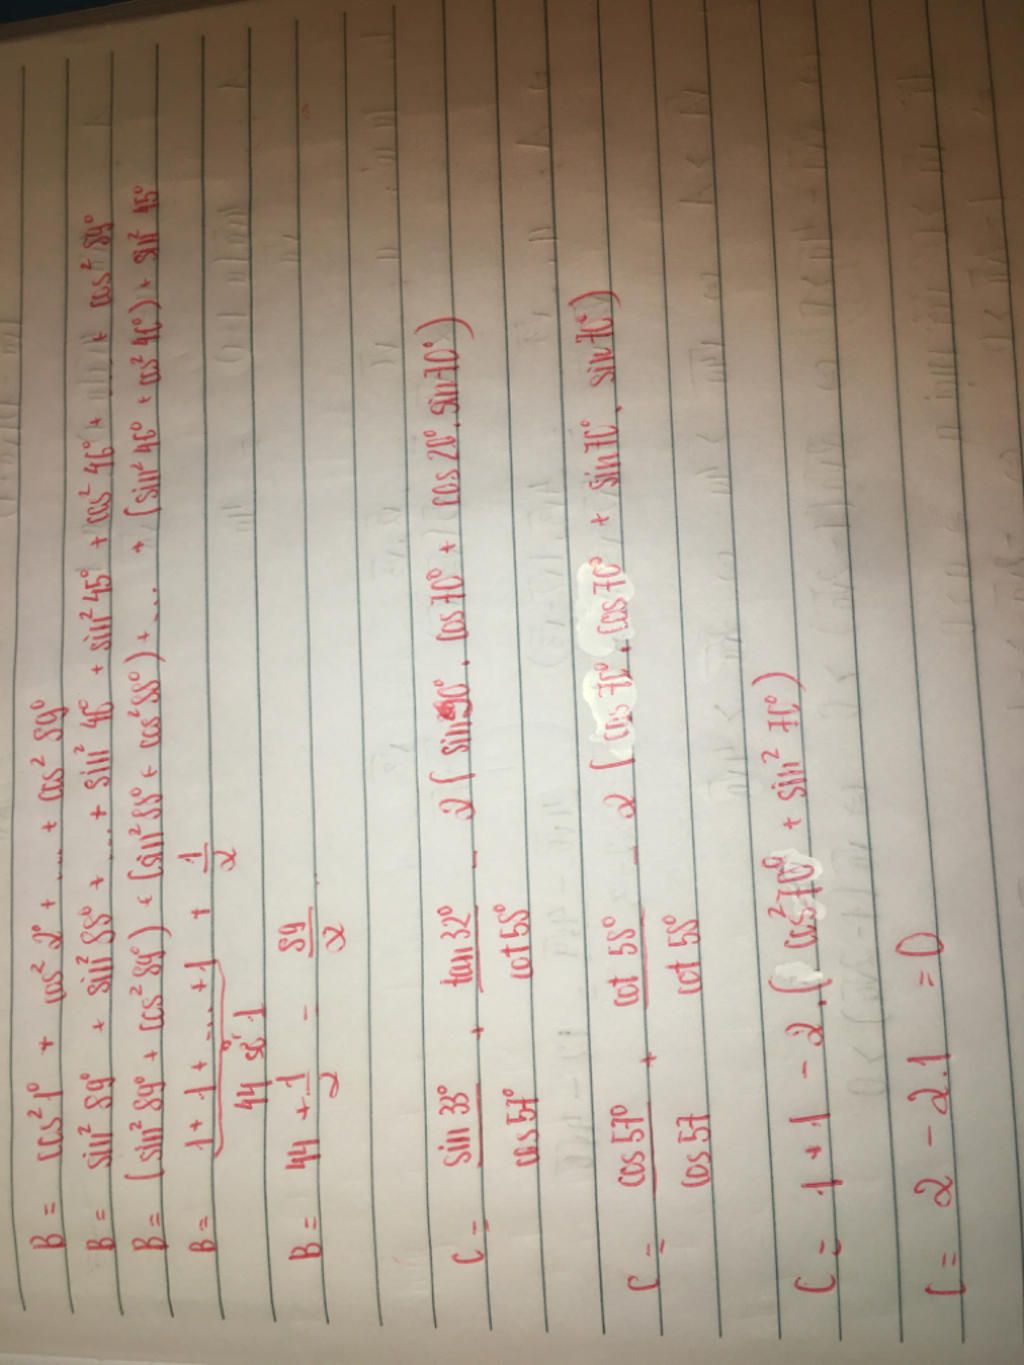 B = cos² 1° + cos² 2° + ... + cos² 89°
B = sin² 89° + sin² 88° + ... + sin² 46° + sin² 45° + cos² 46° + ... + cos² 89°
B = (sin² 89° + cos² 89°) + (sin² 88° + cos² 88°) + ... + (sin² 46° + cos² 46°) + sin² 45°
B = 1 + 1 + ... + 1 + 1/2
44 số 1
B = 44 + 1/2 = 89/2
C = sin 33°/cos 57° + tan 32°/cot 58° - 2 ( sin 20° . cos 70° + cos 20° . sin 70° )
C = cos 57°/cos 57 + cot 58°/cot 58° - 2 ( cos 70° . cos 70° + sin 70° . sin 70° )
C = 1 + 1 - 2 . ( cos² 70° + sin² 70° )
C = 2 - 2.1 = 0